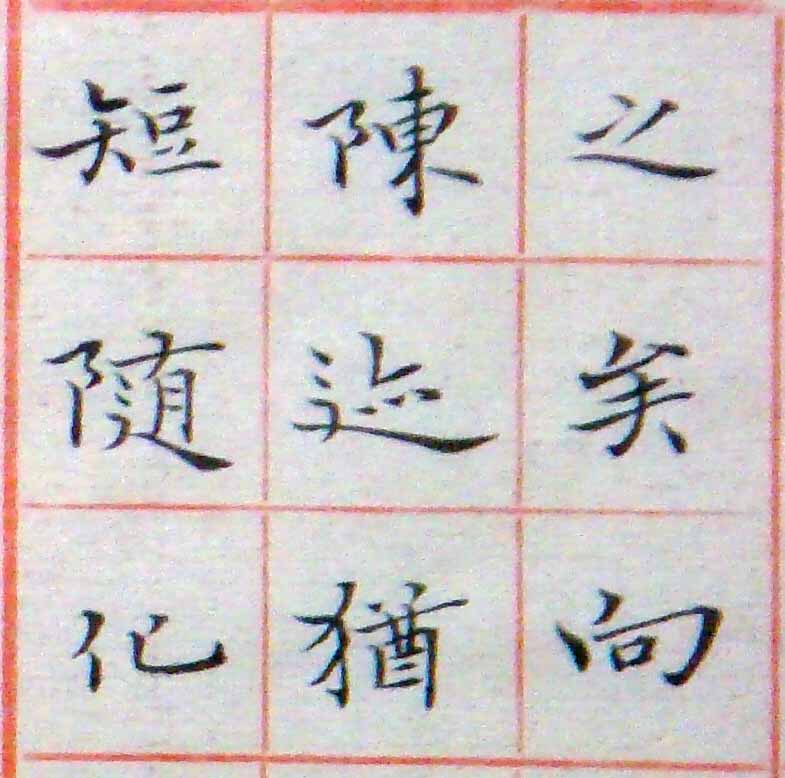 之矣向
陳迹猶
短随化